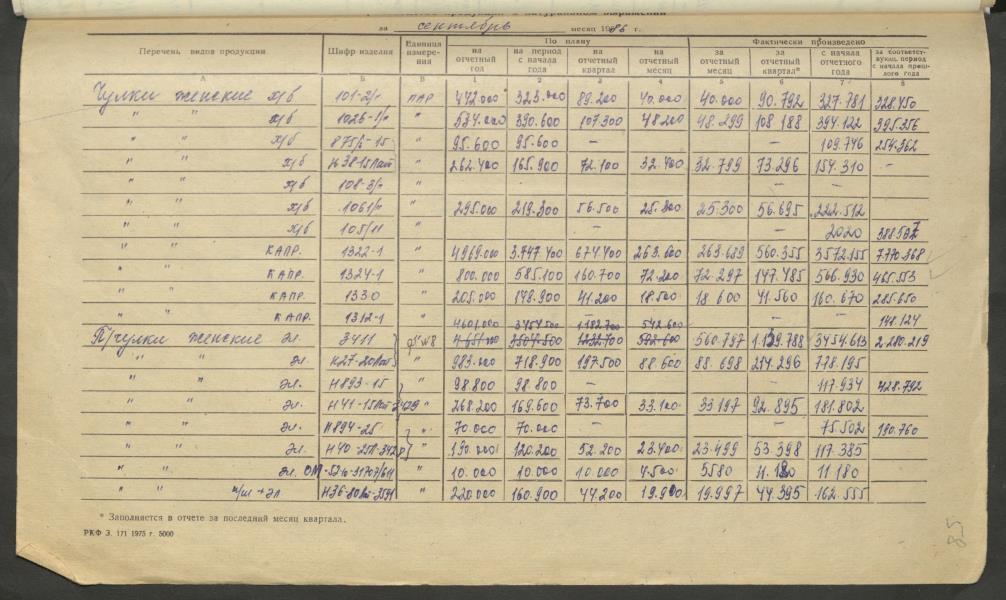 за сентябрь месяц 1986 г.
Перечень видов продукции Шифр изделия Единица измерения По плану Фактически произведено
на отчетный год на период с начала года на отчетный квартал на отчетный месяц за отчетный месяц за отчетный квартал* с начала отчетного года за соответствующ. период с начала прошлого года
А Б В 1 2 3 4 5 6 7 8
Чулки женские х/б 101-2/п ПАР 472.000 323.000 89.200 40.000 40.000 90.792 327.781 328.450
" " х/б " 534.000 390.600 107.300 48.200 48.299 108 188 394.122 395.256
" " х/б 875/6-15 " 95.600 95.600 – – 109.746 254.362
" " х/б " 262.400 165.900 72.100 32.400 32.799 73.296 154.310 –
" " х/б 108-3/п " – –
" " х/б 1061/п " 295.000 219.300 56.500 25.300 25.300 56.695 222.512
" " х/б 105/11 " – 2020
" " КАПР. 1322-1 " 4969.000 3.747.400 674.400 263.600 263.689 560.355 3572.155 7.770.368
" " КАПР. 1324-1 " 800.000 585.100 160.700 72.200 72.297 147.485 566.930 465.553
" " КАПР. 1330 " 205.000 148.900 41.200 18.500 18.600 41.560 160.670 285.650
" " КАПР. 1312-1 " 141.124
4601.000 3454.500 1.182.700 542.600
П/чулки женские эл. 3411 560.787 3454.613 2.280.219
" " эл. " 983.000 718.900 197.500 88.600 88.698 214.296 728.195
" " эл. Н893-15 " 98.800 98.800 – 117.934 428.792
" " эл. " 268.200 169.600 73.700 33.100 33197 92.895 181.802
" " эл. Н894-25 " 70.000 70.000 – 75.502 190.760
" " эл. " 190.000 120.200 52.200 23.400 23.499 53.398 117.385
" " эл. " 10.000 10.000 10.000 4.500 5580 11.180 11 180
" " п/ш + эл " 220.000 160.900 44.200 19.900 19.997 44.395 162.555
* Заполняется в отчете за последний месяц квартала.
РКФ З. 171 1975 г. 5000
85